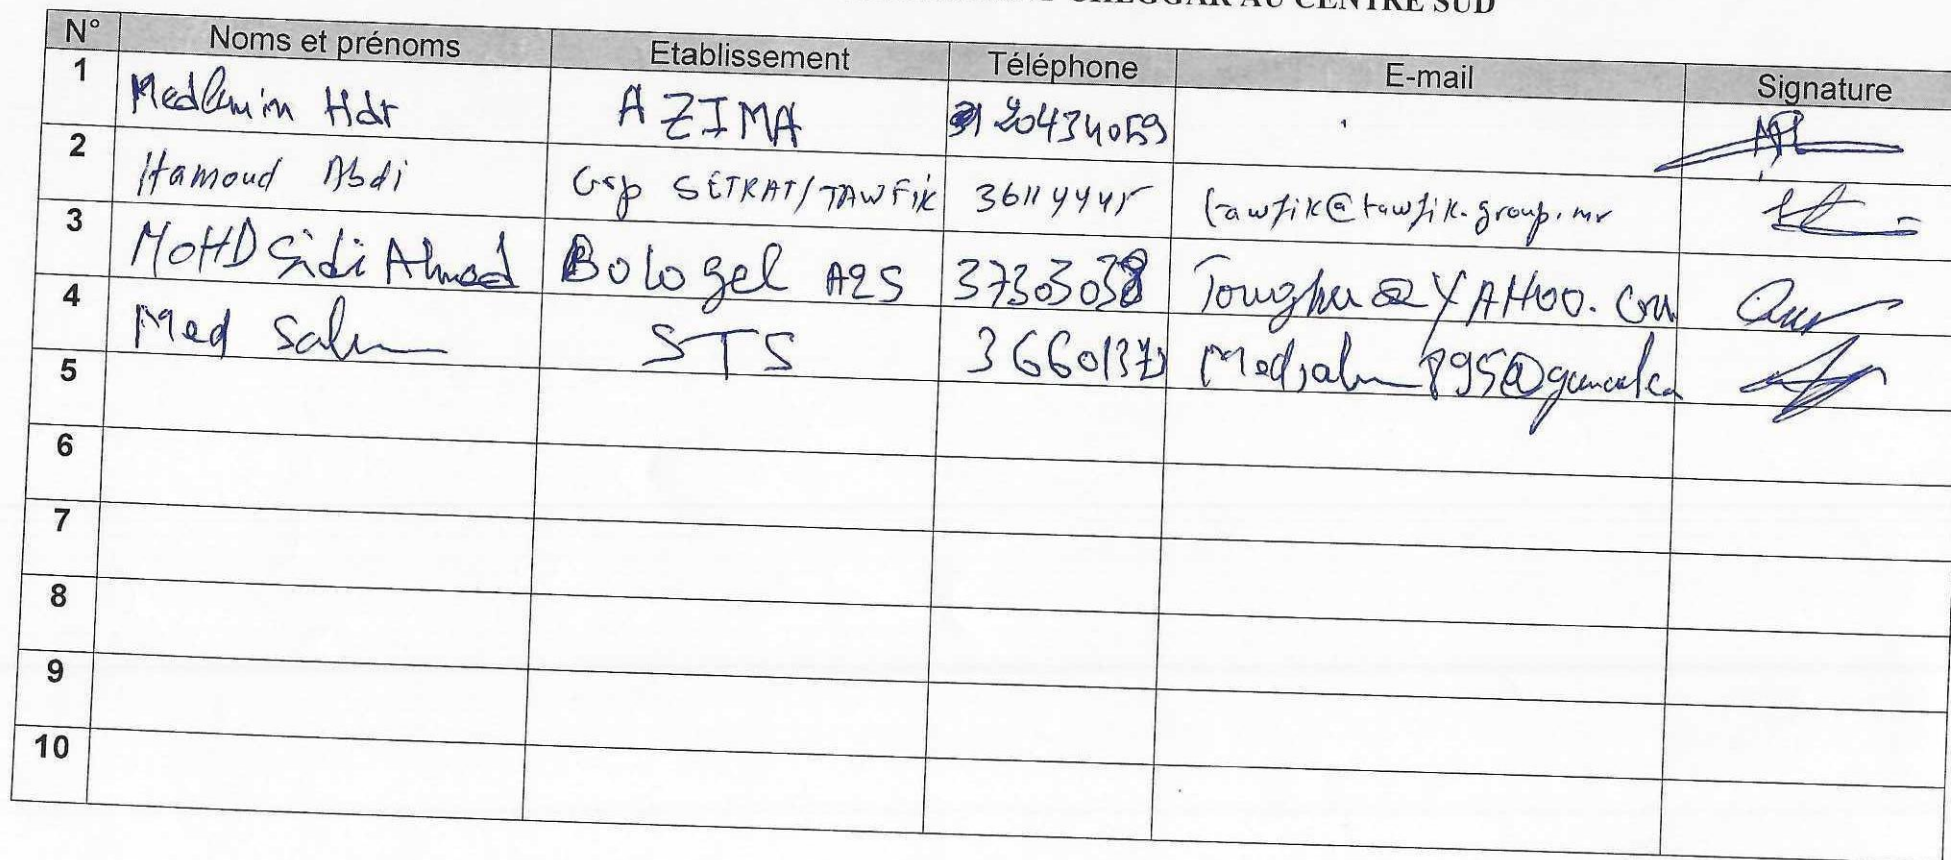 CHEGGAR AU CENTRE SUD
N° Noms et prénoms Etablissement Téléphone E-mail Signature
1 Medlemin Hdr AZIMA 20434059
2 Hamoud Abdi Grp SETRAT/TAWFIK 36114445 tawfik@tawfik.group.mr
3 MOHD Sidi Ahmed Bologel A2S 3730303
4 Med Salem STS 
5
6
7
8
9
10